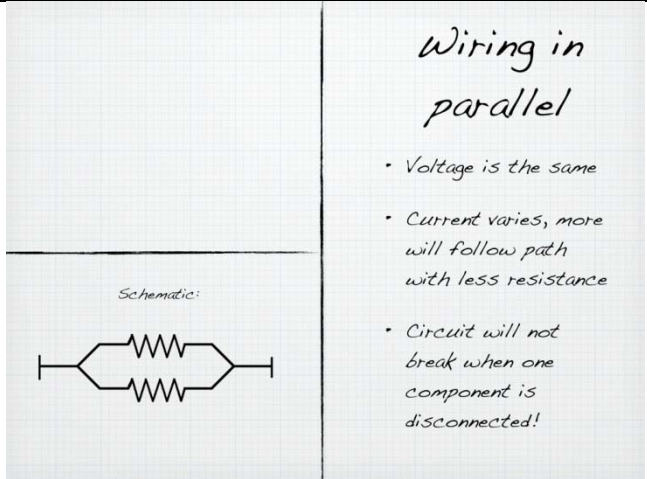 Wiring in
parallel
• Voltage is the same
• Current varies, more
will follow path
with less resistance
• Circuit will not
break when one
component is
disconnected!
Schematic: